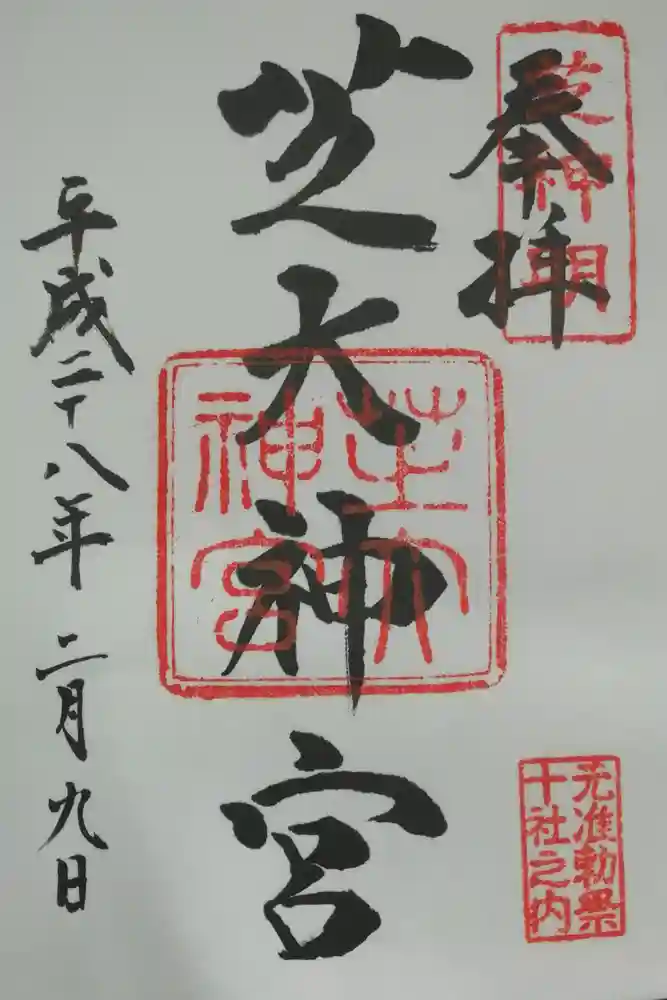 奉拝
芝神明
芝大神宮
芝大
神宮
平成二十八年 二月九日
元准勅祭
十社之内